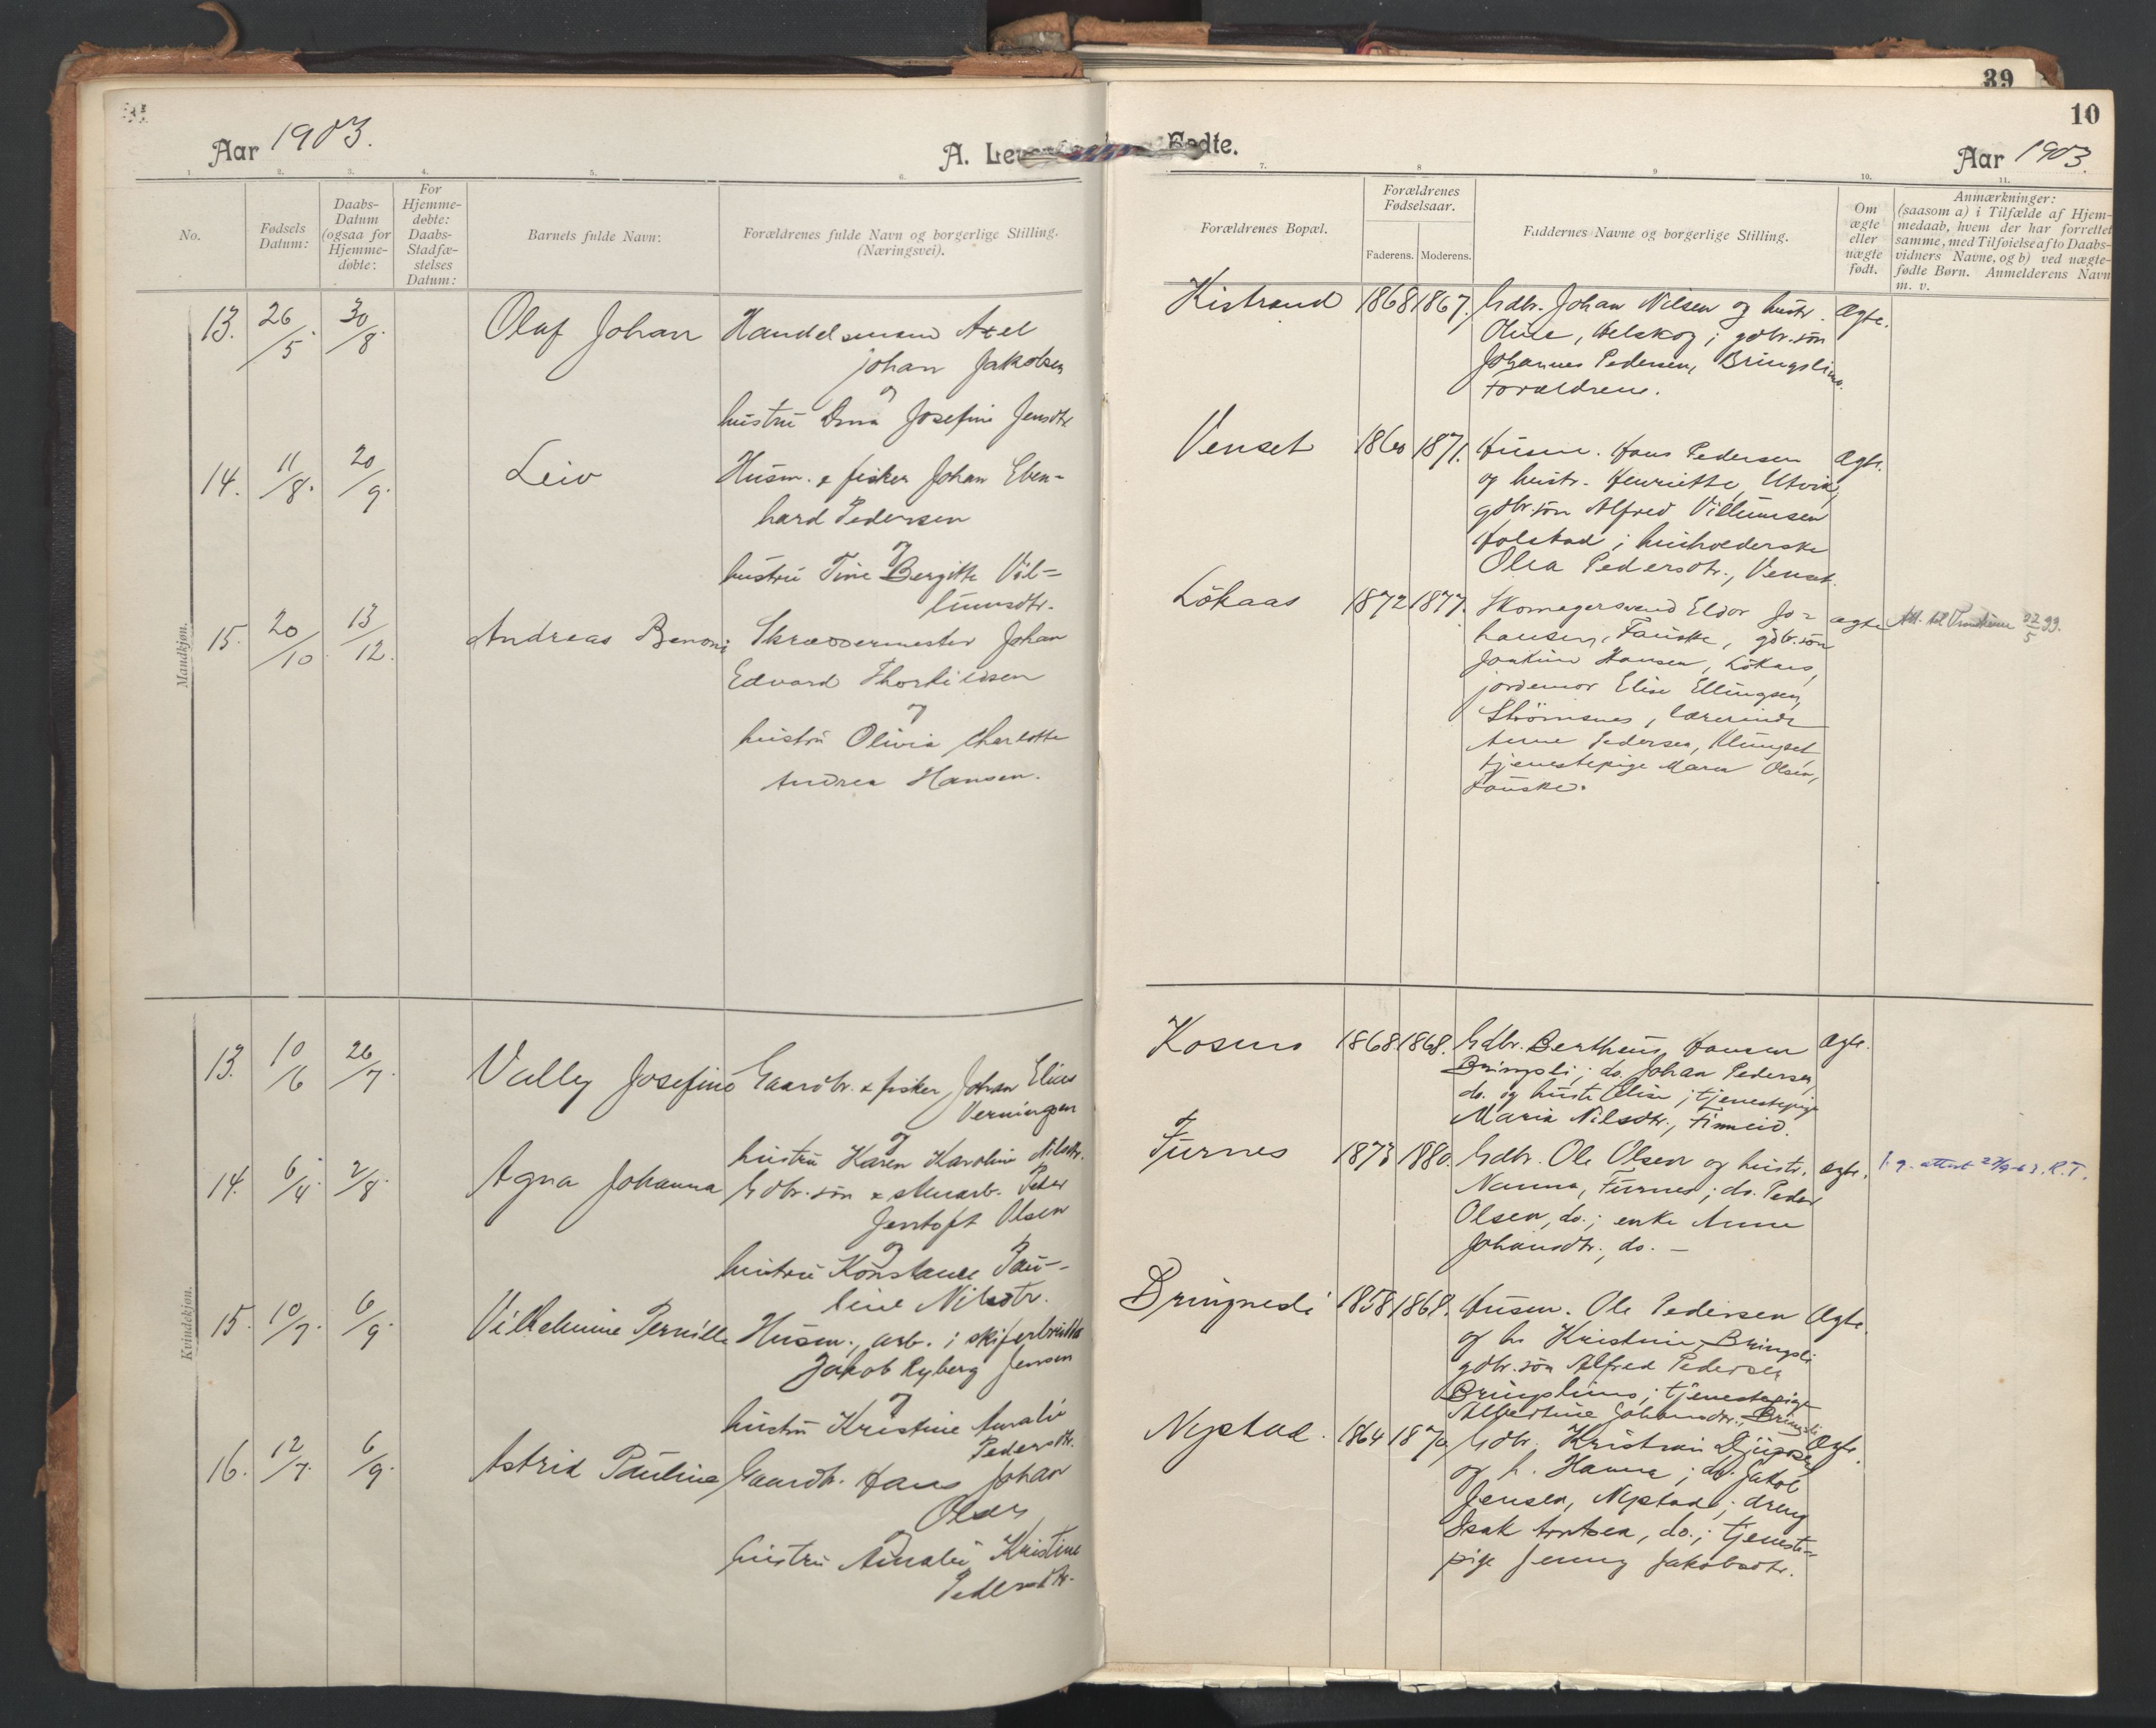 39
10
Aar 1903.
A. Lev Fødte.
Aar 1903.
1. 2. 3. 4. 5. 6. 7. 8 9 10. 11.
No.
Fødsels Datum:
Daabs-
Datum
(ogsaa for
Hjemme-
døbte:
For
Hjemme-
døbte:
Daabs-
Stadfæ-
stelses
Datum:
Barnets fulde Navn:
Forældrenes fulde Navn og borgerlige Stilling.
(Næringsvei).
Forældrenes Bopæl.
Forældrenes
Fødselsaar.
Faderens. Moderens.
Faddernes Navne og borgerlige Stilling.
Om
ægte
eller
uægte
født.
Anmærkninger:
(saasom a) i Tilfælde af Hjem-
medaab, hvem der har forrettet
samme, med Tilføielse af to Daabs-
vidners Navne, og b) ved uægte-
fødte Børn. Anmelderens Navn
m. v.
Mandkjøn.
13. 26/5. 30/8. Olaf Johan
Handelsmand Axel
Johan Jakobsen
og
hustru Josefine Jensdtr
Kistrand 1868 1867.
Gdbr. Johan Nilsen og hustr.
Oline, ; gdbr.søn
Johannes Pedersen, Bringslimo.
Forældrene.
Ægte.
14. 11/8. 20/9. Leiv
Husm. & fisker Johan Eben-
hard Pedersen
og
hustru Tine Bergitte Vil-
lumsdtr.
Venset 1860 1871.
Husm. Hans Pedersen
og hustr. Henriette, Utvik,
gdbr.søn Alfred Villumsen
Holstad; husholderske
Olea Pedersdtr., Venset.
Ægte.
15. 20/10. 13/12. Andreas Benoni
Skræddermester Johan
Edvard Thorkildsen
og
hustru Olivia Charlotte
Andrea Hansen.
Løkaas 1872 1877.
Skomagersvend Eldor Jo-
hansen, Fauske, gdbr.søn
Joakim Hansen, Løkaas,
jordemor Elise Ellingsen,
Strømsnes, lærerinde
Anne Pedersen, Klungset
tjenestepige Maren Olsen,
Fauske.
ægte
Att. til
Kvindekjøn.
13. 10/6 26/7. Valley Josefine
Gaardbr. & fisker, Johan Elias
Verningsen
og
hustru Karen Karoline Nilsdtr.
Kosmo 1868. 1868.
Gdbr. Bertheus Hansen
Bringsli; do. Johan Pedersen,
do. og hustr. Elise; tjenestepige
Maria Nilsdtr., Finneid.
Ægte.
14. 6/4 2/8. Agna Johanna
Gdbr.søn & stenarb. Peder
Jentoft Olsen
og
hustru Konstance Pau-
line Nilsdtr.
Furnes 1873 1880.
Gdbr. Ole Olsen og hustr.
Nanna, Furnes; do. Peder
Olsen, do.; enke Anne
Johansdtr., do. —
Ægte.
f.g. attest R.T.
15. 10/7. 6/9. Vilhelmine Pernille
Husm., arb. i skiferbrudd
Jakob Ryberg Jensen
og
hustru Kristine Amalie
Pedersdtr.
Bringsli 1858 1868.
Husm. Ole Pedersen
og h. Kristine, Bringsli
gdbr.søn Alfred Pedersen
Bringslimo; tjenestepige
Albertine Johansdtr., Bringsli
Ægte.
16. 12/7. 6/9. Astrid Pauline
Gaardb. Hans Johan
Olsen
og
hustru Amalie Kristine
Pedersdtr.
Nystad. 1864 1870
Gdbr. Kristian
og h. Hanna; do. Jakob
Jensen, Nystad; dreng
Isak Arntsen, do.; tjeneste-
pige Jenny Jakobsdtr.
Ægte.